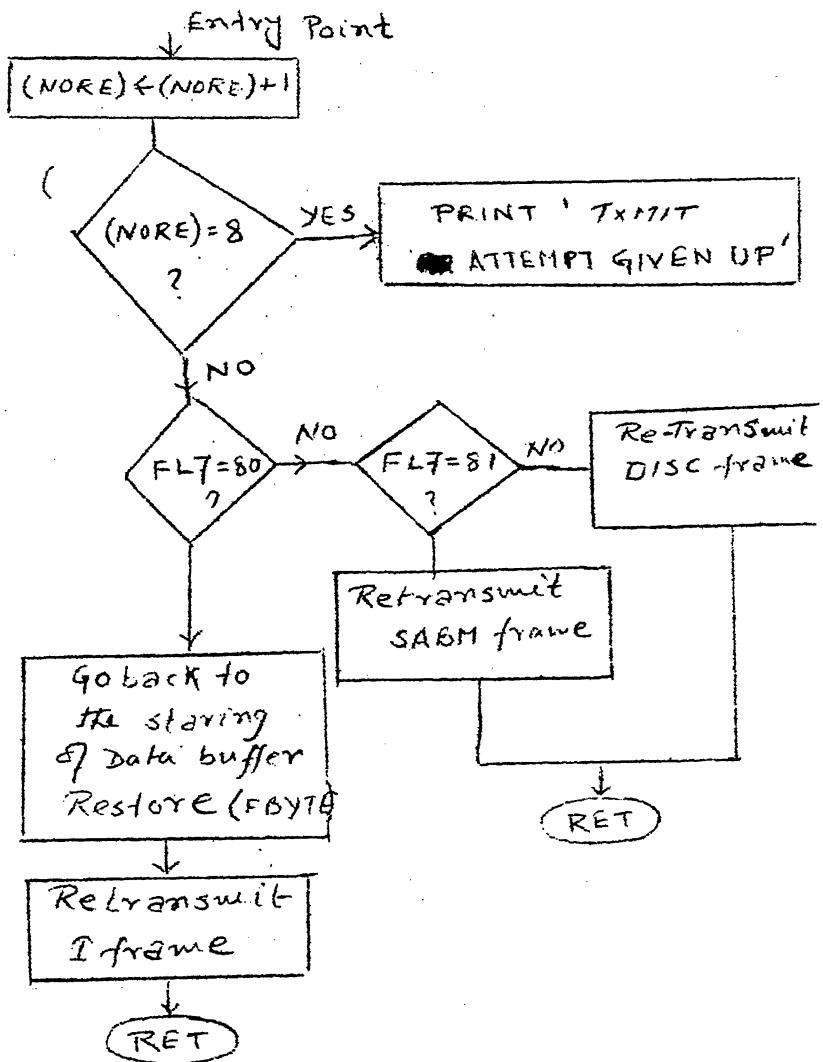 Entry Point
(NORE)←(NORE)+1
(
(NORE)=8
?
YES
PRINT ' TXMIT
ATTEMPT GIVEN UP'
NO
FL7=80
?
NO
FL7=81
?
NO
Re-Transmit
DISC frame
Retransmit
SABM frame
Go back to
the staring
of Data buffer
Restore (FBYTE
RET
Retransmit
I frame
RET